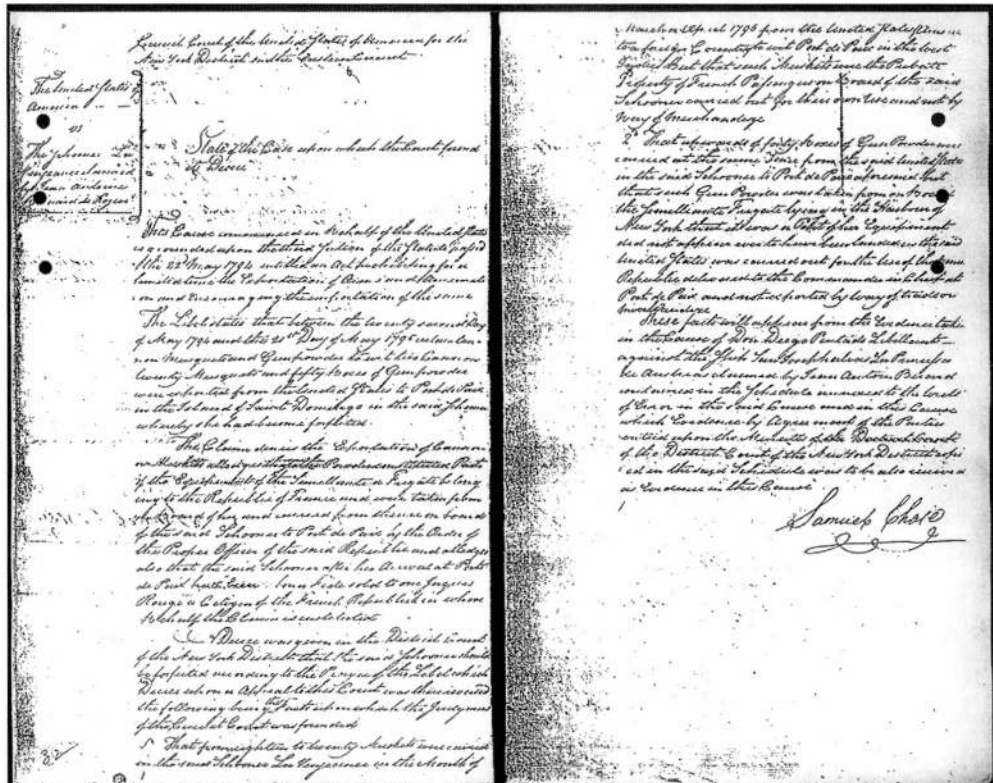 Circuit Court of the United States of America for the
New York District in the Circuit
The United States of
America
vs
The Schooner La
Vengeance claimed
by Jean Antoine
Bernard de Rogers
State of the Case upon which the Court found
its Decree
This Cause commenced in Behalf of the United States
is grounded upon the third Section of the Statute passed
the 22d May 1794 entitled an Act prohibiting for a
limited time the Exportation of Arms and Ammunition
on and Encouraging the importation of the same
The Libel states that between the twenty second Day
of May 1794 and the 21st Day of May 1795 certain Can
non Musquets and Gunpowder to wit two Cannon
twenty Musquets and fifty Boxes of Gunpowder
were exported from the United States to Port de Paix
in the Island of Saint Domingo in the said Schooner
whereby she had become forfeited
The Claim denies the Exportation of Cannon
or Muskets alledges that the Powder constituted Parts
of the Equipments of the Semillante a Frigate belong
ing to the Republic of France and were taken from
on Board of her and carried from thence on board
of the said Schooner to Port de Paix by the Order of
the Proper Officer of the said Republic and alledges
also that the said Schooner after her Arrival at Port
de Paix bona Fide sold to one Jaques
Rouge a Citizen of the French Republick in whose
Behalf the Claim is instituted
A Decree was given in the District Court
of the New York District that the said Schooner should
be forfeited according to the Prayer of the Libel which
Decree upon an Appeal to this Court was there reversed
the following being the Facts upon which the Judgment
of the Circuit Court was founded
1 That from eighteen to twenty Muskets were carried
in the said Schooner La Vengeance in the Month of
March or April 1795 from the United States
to a foreign Country to wit Port de Paix in the West
Indies But that such Muskets were the Private
Property of French Passengers on Board of the said
Schooner carried out for their own Use and not by
Way of Merchandize
2 That upwards of forty Boxes of Gun Powder were
carried at the same Time from the said United States
in the said Schooner to Port de Paix aforesaid But
that such Gun Powder was taken from on Board
the Semillante Frigate lying in the Harbour of
New York that it was a Part of her Equipment
did not appear ever to have been landed in the said
United States was carried out for the Use of the French
Republic delivered to the Commander in Chief at
Port de Paix and not exported by Way of trade or
Merchandize
These facts will appear from the Evidence taken
in the Cause of Don Diego Pintado Libellant
against the Ship San Joseph alias La Princessa
de Asturias claimed by Jean Antoine Bernard
contained in the Schedule annexed to the Writ
of Error in the said Cause and in this Cause
which Evidence by Agreement of the Parties
entered upon the Minutes of the District Court
of the District Court of the New York District
ed in the said Schedule was to be also received
as Evidence in this Cause
Samuel Chase
32